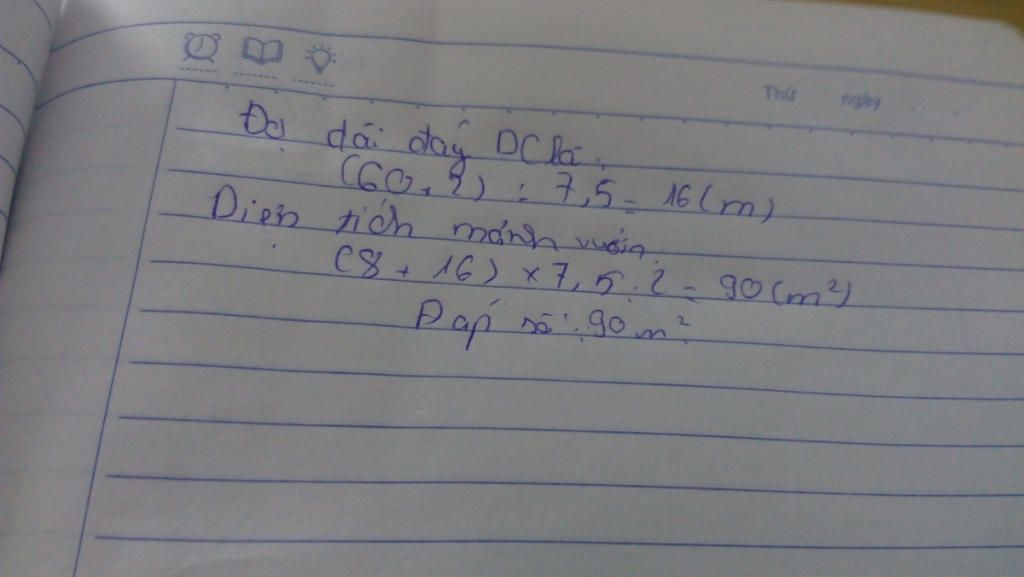 Thứ ngày
Độ dài đáy DC là:
(60 . 2) : 7,5 = 16 (m)
Diện tích mảnh vườn.
(8 + 16) × 7,5 : 2 = 90 (m²)
Đáp số: 90 m²